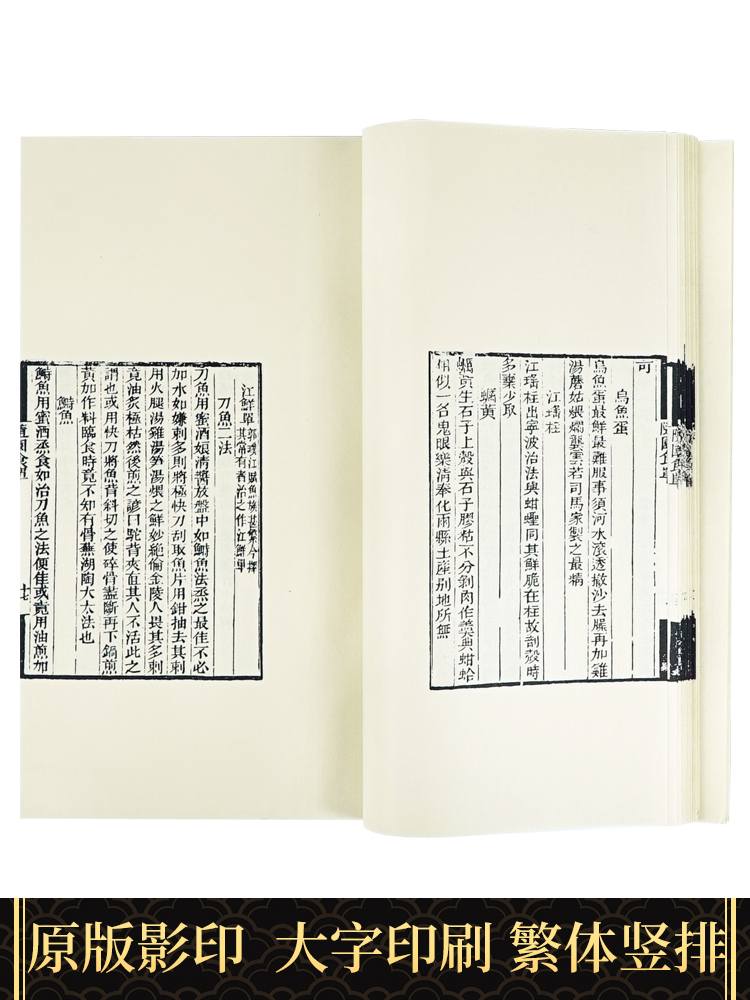 可
烏魚蛋
烏魚蛋最鮮最難服事須河水滾透撤沙去臊再加雞
湯蘑菇煨爛龔雲若司馬家製之最精
江瑤柱
江瑤柱出寧波治法與蚶蟶同其鮮脆在柱故剖殼時
多棄少取
蠣黃
蠣黃生石子上殼與石子膠粘不分剝肉作羹與蚶蛤
相似一名鬼眼樂清奉化兩縣土產别地所無
隨園食單
江鮮單 郭璞江賦魚族甚繁今擇
其常有者治之作江鮮單
刀魚二法
刀魚用蜜酒娘清醬放盤中如鰣魚法蒸之最佳不必
加水如嫌刺多則將極快刀刮取魚片用鉗抽去其刺
用火腿湯雞湯笋湯煨之鮮妙絕倫金陵人畏其多刺
竟油炙極枯然後煎之諺曰駝背夾直其人不活此之
謂也或用快刀將魚背斜切之使碎骨盡斷再下鍋煎
黃加作料臨食時竟不知有骨蕪湖陶大太法也
鰣魚
鰣魚用蜜酒蒸食如治刀魚之法便佳或竟用油煎加
原版影印 大字印刷 繁体竖排